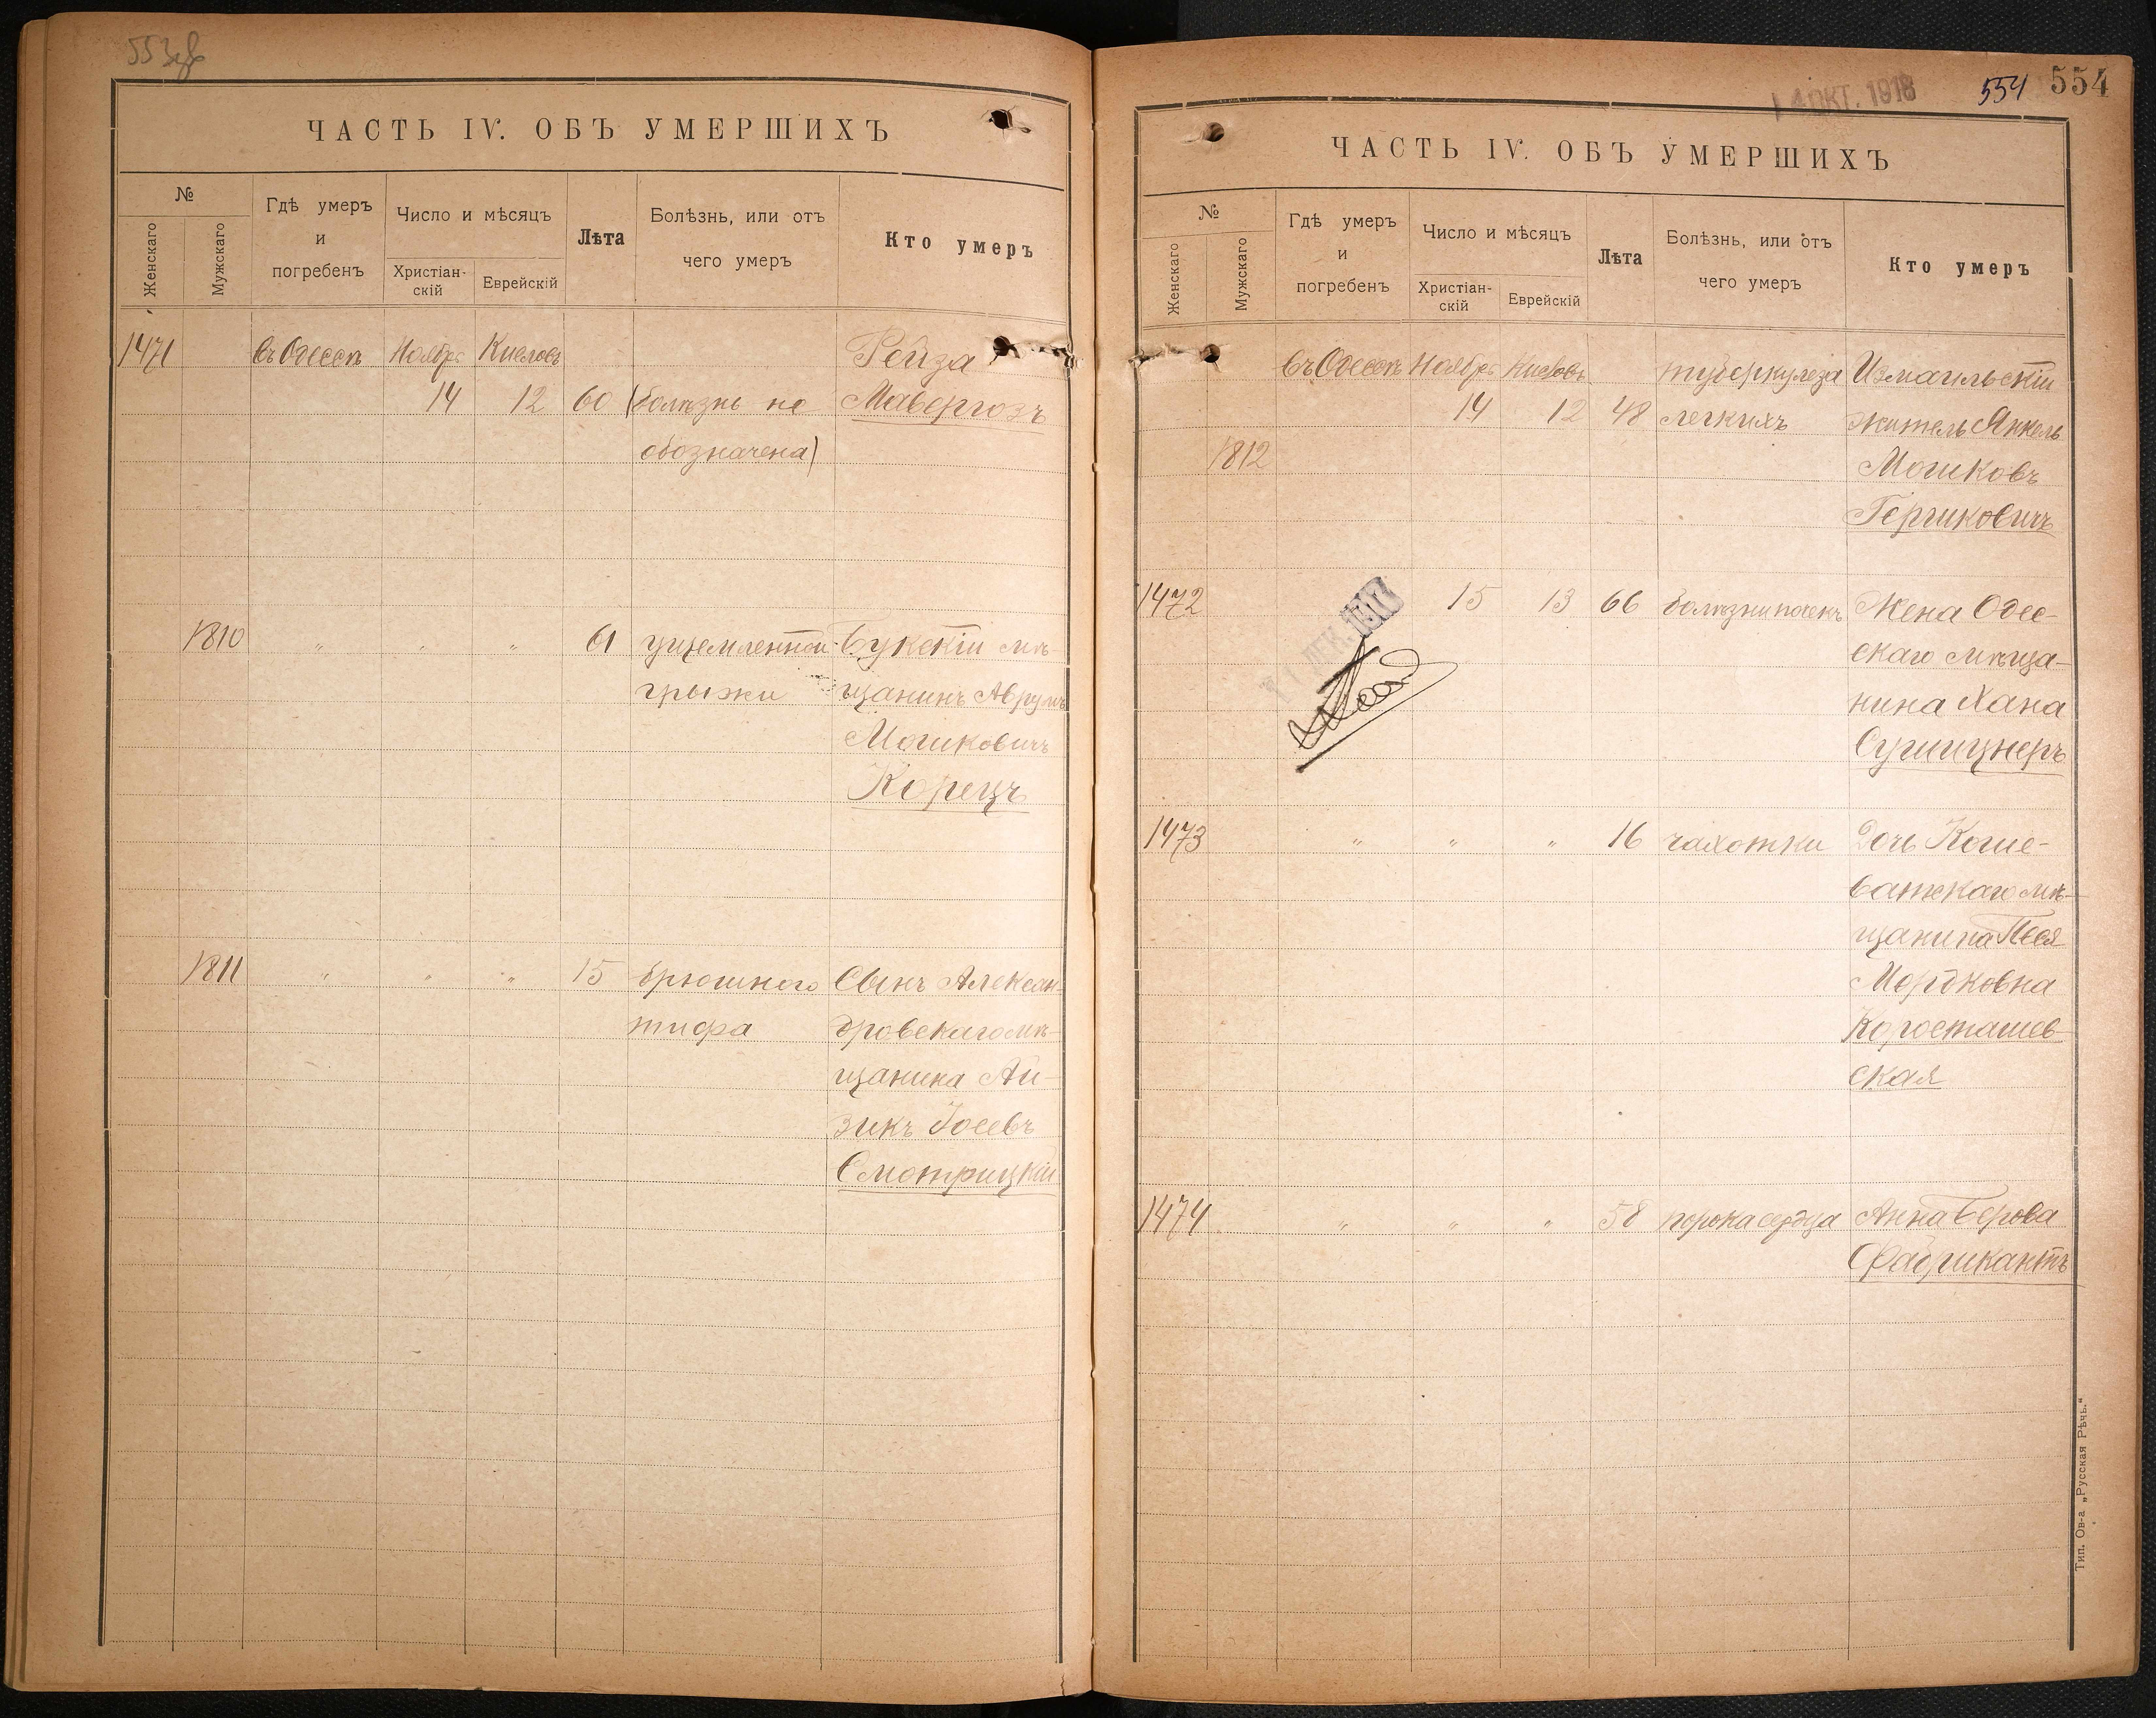 553об
ЧАСТЬ IV. ОБЪ УМЕРШИХЪ
№
Женскаго
Мужскаго
Гдѣ умеръ
и
погребенъ
Число и мѣсяцъ
Христіан-
скій
Еврейскій
Лѣта
Болѣзнь, или отъ
чего умеръ
Кто умеръ
1471 въ Одессѣ Ноябрь Кислевъ Рейза
14 12 60 (болѣзнь не Мавергозъ
обозначена)
1810 " " " 61 ущемленной Букскій мѣ-
грыжи щанинъ Аврумъ
Мошковичъ
Корецъ
1811 " " " 15 брюшного Сынъ Алексан-
тифа дровскаго мѣ-
щанина Ай-
зикъ Іосевъ
Смотрицкій
14 ОКТ. 1918
554 554
ЧАСТЬ IV. ОБЪ УМЕРШИХЪ
№
Женскаго
Мужскаго
Гдѣ умеръ
и
погребенъ
Число и мѣсяцъ
Христіан-
скій
Еврейскій
Лѣта
Болѣзнь, или отъ
чего умеръ
Кто умеръ
въ Одессѣ Ноябрь Кислевъ туберкулеза Измаильскій
14 12 48 легкихъ житель Янкель
1812 Мошковъ
Гершковичъ
1472 15 13 66 болѣзни почекъ Жена Одес-
скаго мѣща-
нина Хана
Сушицнеръ
1473 " " " 16 чахотки Дочь Коше-
ватскаго мѣ-
щанина Песя
Мордковна
Коросташев-
ская
1474 " " " 58 порока сердца Анна Берова
Фабрикантъ
Тип. Ов-а „Русская Рѣчь."